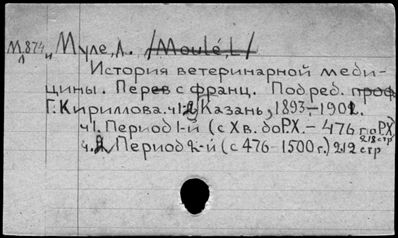 М 874
л
Муле, Л. /Moulé, L/
История ветеринарной меди-
цины. Перев с франц. Под ред. проф
Г. Кириллова. ч 1-2 Казань, 1893-1902.
ч 1. Период 1-й (с X в. до Р.Х. - 476 г по Р.Х)
218 стр
ч. 2 Период 2-й (с 476 - 1500 г.) 212 стр